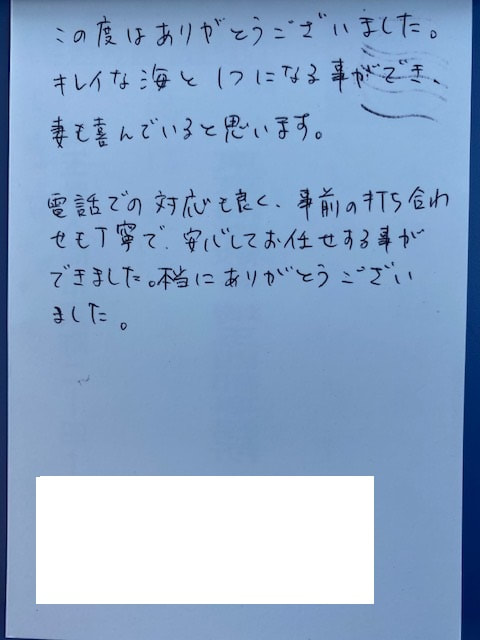 この度はありがとうございました。
キレイな海と1つになる事ができ、
妻も喜んでいると思います。
電話での対応も良く、事前の打ち合わ
せも丁寧で、安心してお任せする事が
できました。本当にありがとうござい
ました。